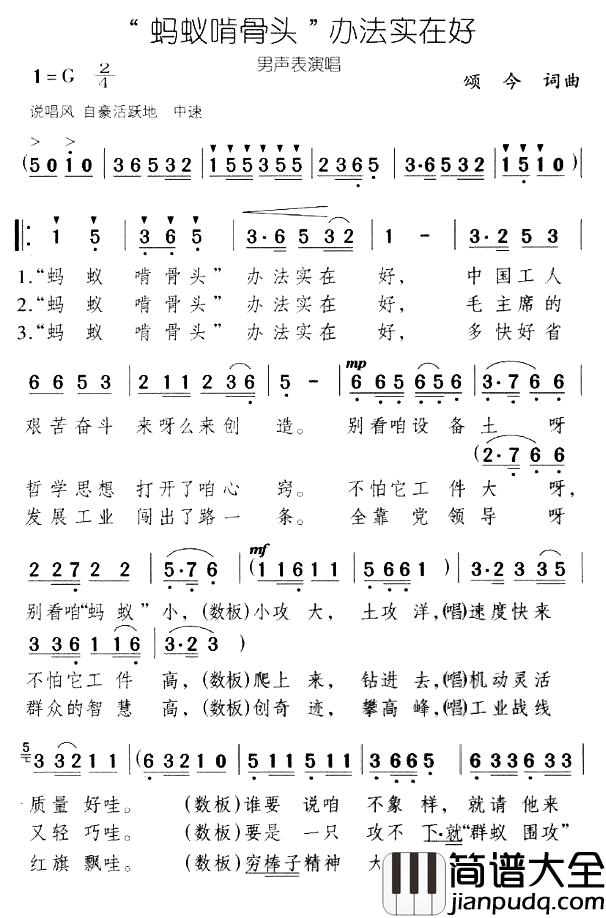 “蚂蚁啃骨头”办法实在好
男声表演唱
1=G 2/4
颂 今 词曲
说唱风 自豪活跃地 中速
(5 0 i 0 | 3 6 5 3 2 | 1 5 5 3 5 5 | 2 3 6 5 | 3·6 5 3 2 | 1 5 1 0)
1 5 | 3 6 5 | 3·6 5 3 2 | 1 - | 3·2 5 3
1.“蚂 蚁 啃骨头” 办法实在 好, 中国工人
2.“蚂 蚁 啃骨头” 办法实在 好, 毛主席的
3.“蚂 蚁 啃骨头” 办法实在 好, 多快好省
mp
6 6 5 3 | 2 1 1 2 3 6 | 5 - | 6 6 5 6 6 5 | 3·7 6 6
艰苦奋斗 来呀么来创 造。 别看咱设备土 呀
(2·7 6 6
哲学思想 打开了咱心 窍。 不怕它工件大 呀,
发展工业 闯出了路一 条。 全靠党领导 呀
mf
2 2 7 2 2 | 5·7 6 | (1 1 6 1 1 | 5 6 6 1) | 3·2 3 3 5
别看咱“蚂蚁” 小, (数板)小攻大, 土攻洋, (唱)速度快来
3 3 6 1 1 6 | 3·2 3 )
不怕它工件 高, (数板)爬上来, 钻进去, (唱)机动灵活
群众的智慧 高, (数板)创奇迹, 攀高峰, (唱)工业战线
5
3 3 2 1 1 | (6 3 2 1 0 | 5 1 1 5 1 1 | 3 6 6 5 | 6 3 3 6 3 3
质量 好哇。 (数板)谁要 说咱 不象样, 就请他来
又轻 巧哇。 (数板)要是一只 攻不下,就“群蚁围攻”
红旗 飘哇。 (数板)穷棒子精神 大
简谱大全
jianpudq.com